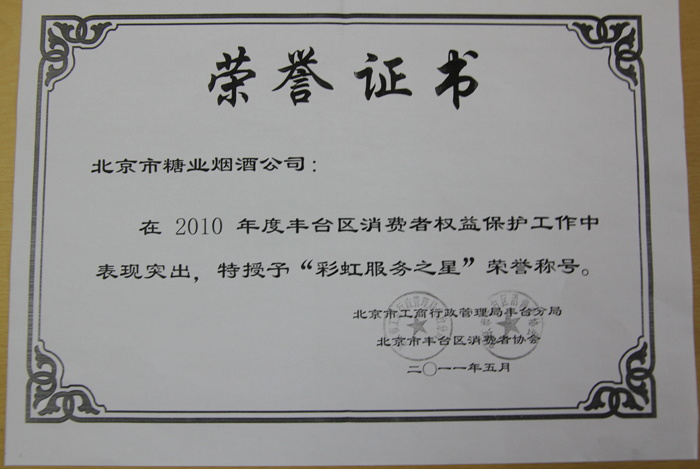 荣誉证书
北京市糖业烟酒公司：
在 2010 年度丰台区消费者权益保护工作中
表现突出，特授予“彩虹服务之星”荣誉称号。
北京市工商行政管理局丰台分局
北京市丰台区消费者协会
二〇一一年五月